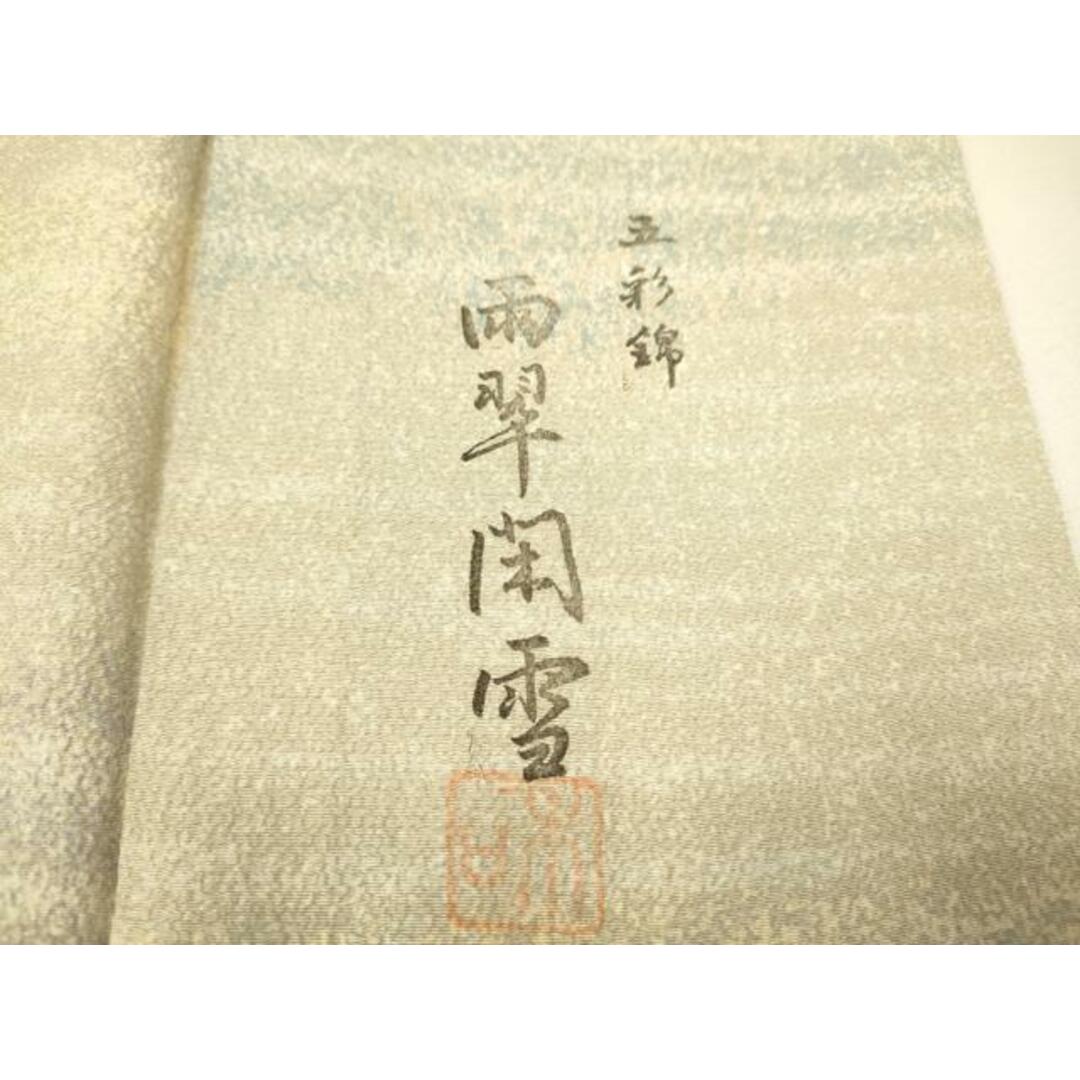 五彩錦
雨翠閑雪